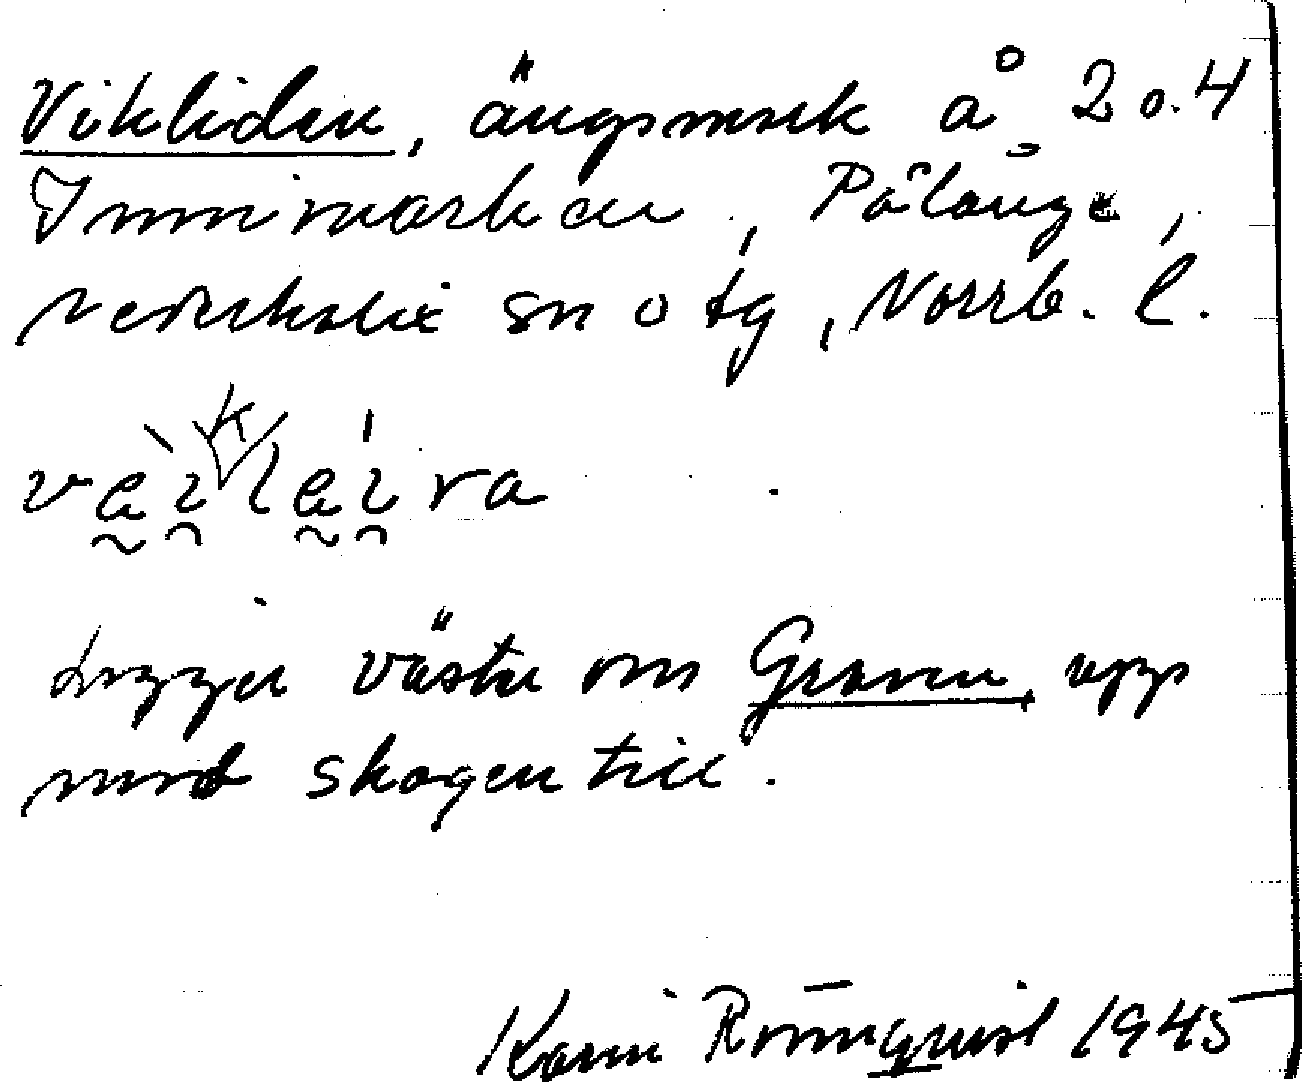 Vikliden, ängsmark å 2 o. 4
Innimarken, Pålänge,
Nederkalix sn o tg, Norrb. l.
va̰ìkla̰íra
Ligger väster om Graven, upp
mot skogen till.
Karin Rönnquist 1945